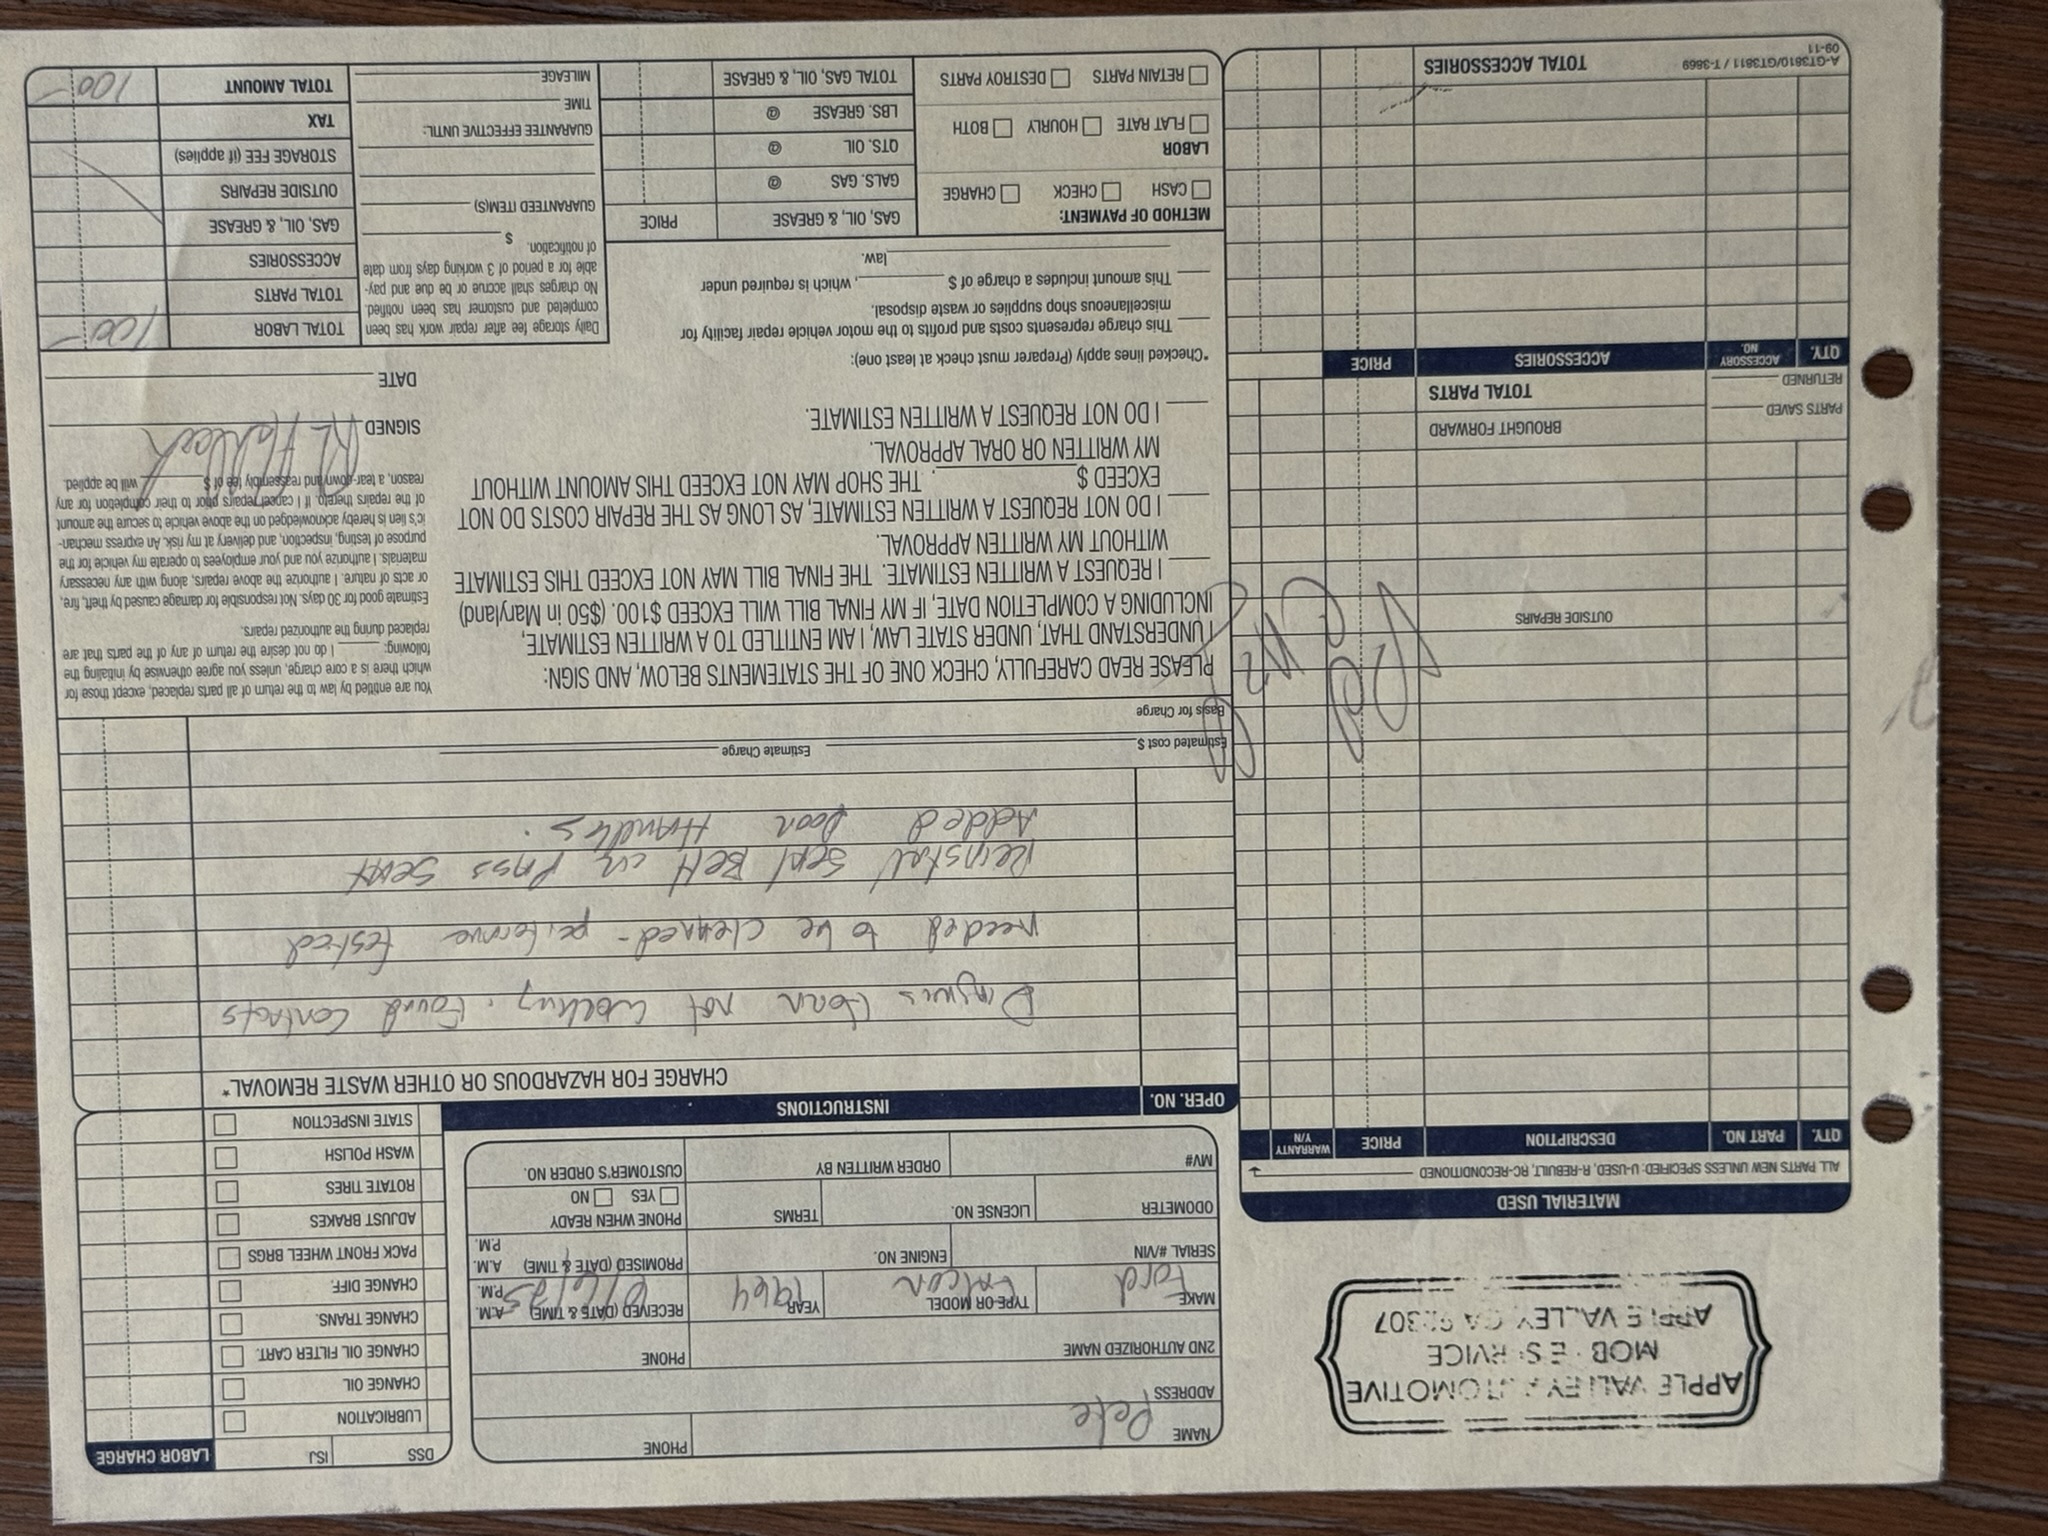 APPLE VALLEY AUTOMOTIVE
MOBILE SERVICE
APPLE VALLEY, CA 92307
MATERIAL USED
ALL PARTS NEW UNLESS SPECIFIED: U-USED, R-REBUILT, RC-RECONDITIONED
QTY. PART NO. DESCRIPTION PRICE WARRANTY Y/N
OUTSIDE REPAIRS
Pd
PARTS SAVED
RETURNED
BROUGHT FORWARD
TOTAL PARTS
QTY. ACCESSORY NO. ACCESSORIES PRICE
TOTAL ACCESSORIES
A-GT3810/GT3811 / T-3869
09-11
NAME Pete PHONE
ADDRESS
2ND AUTHORIZED NAME PHONE
MAKE Ford TYPE OR MODEL Falcon YEAR 1964 RECEIVED (DATE & TIME) A.M. P.M.
SERIAL #/VIN ENGINE NO. PROMISED (DATE & TIME) A.M. P.M.
ODOMETER LICENSE NO. TERMS PHONE WHEN READY YES NO
MV# ORDER WRITTEN BY CUSTOMER'S ORDER NO.
DSS ISJ LABOR CHARGE
LUBRICATION
CHANGE OIL
CHANGE OIL FILTER CART.
CHANGE TRANS.
CHANGE DIFF.
PACK FRONT WHEEL BRGS
ADJUST BRAKES
ROTATE TIRES
WASH POLISH
STATE INSPECTION
OPER. NO. INSTRUCTIONS
CHARGE FOR HAZARDOUS OR OTHER WASTE REMOVAL*
Horn not working. Found contacts
needed to be cleaned - performe tested
Reinstal Seat Belt on Pass Seat
Added Door Handles.
Estimated cost $ Estimate Charge
Basis for Charge
PLEASE READ CAREFULLY, CHECK ONE OF THE STATEMENTS BELOW, AND SIGN:
I UNDERSTAND THAT, UNDER STATE LAW, I AM ENTITLED TO A WRITTEN ESTIMATE,
INCLUDING A COMPLETION DATE, IF MY FINAL BILL WILL EXCEED $100. ($50 in Maryland)
I REQUEST A WRITTEN ESTIMATE. THE FINAL BILL MAY NOT EXCEED THIS ESTIMATE
WITHOUT MY WRITTEN APPROVAL.
I DO NOT REQUEST A WRITTEN ESTIMATE, AS LONG AS THE REPAIR COSTS DO NOT
EXCEED $ . THE SHOP MAY NOT EXCEED THIS AMOUNT WITHOUT
MY WRITTEN OR ORAL APPROVAL.
I DO NOT REQUEST A WRITTEN ESTIMATE.
*Checked lines apply (Preparer must check at least one):
This charge represents costs and profits to the motor vehicle repair facility for
miscellaneous shop supplies or waste disposal.
This amount includes a charge of $ , which is required under
law.
You are entitled by law to the return of all parts replaced, except those for
which there is a core charge, unless you agree otherwise by initialing the
following: I do not desire the return of any of the parts that are
replaced during the authorized repairs.
Estimate good for 30 days. Not responsible for damage caused by theft, fire,
or acts of nature. I authorize the above repairs, along with any necessary
materials. I authorize you and your employees to operate my vehicle for the
purpose of testing, inspection, and delivery at my risk. An express mechan-
ic's lien is hereby acknowledged on the above vehicle to secure the amount
of the repairs thereto. If I cancel repairs prior to their completion for any
reason, a tear-down and reassembly fee of $ will be applied.
SIGNED
DATE
METHOD OF PAYMENT:
CASH CHECK CHARGE
LABOR
FLAT RATE HOURLY BOTH
RETAIN PARTS DESTROY PARTS
GAS, OIL, & GREASE PRICE
GALS. GAS @
QTS. OIL @
LBS. GREASE @
TOTAL GAS, OIL, & GREASE
Daily storage fee after repair work has been
completed and customer has been notified.
No charges shall accrue or be due and pay-
able for a period of 3 working days from date
of notification. $
GUARANTEED ITEM(S)
GUARANTEE EFFECTIVE UNTIL:
TIME
MILEAGE
TOTAL LABOR 100-
TOTAL PARTS
ACCESSORIES
GAS, OIL, & GREASE
OUTSIDE REPAIRS
STORAGE FEE (if applies)
TAX
TOTAL AMOUNT 100-